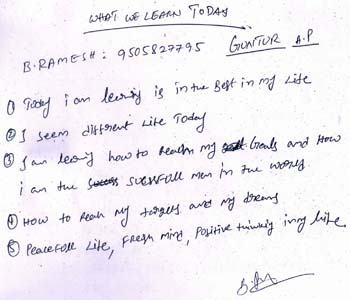 WHAT WE LEARN TODAY
B.RAMESH: 9505827795 GUNTUR A.P
① Today i am learing is in the Best in my Life
② I seem different Life Today
③ I am learing how to Reach my Goals and How
i am the sucessfull men in the world
④ How to Reach my targets and my dreams
⑤ Peacefull Life, Fresh mind, Positive thinking in my Life.